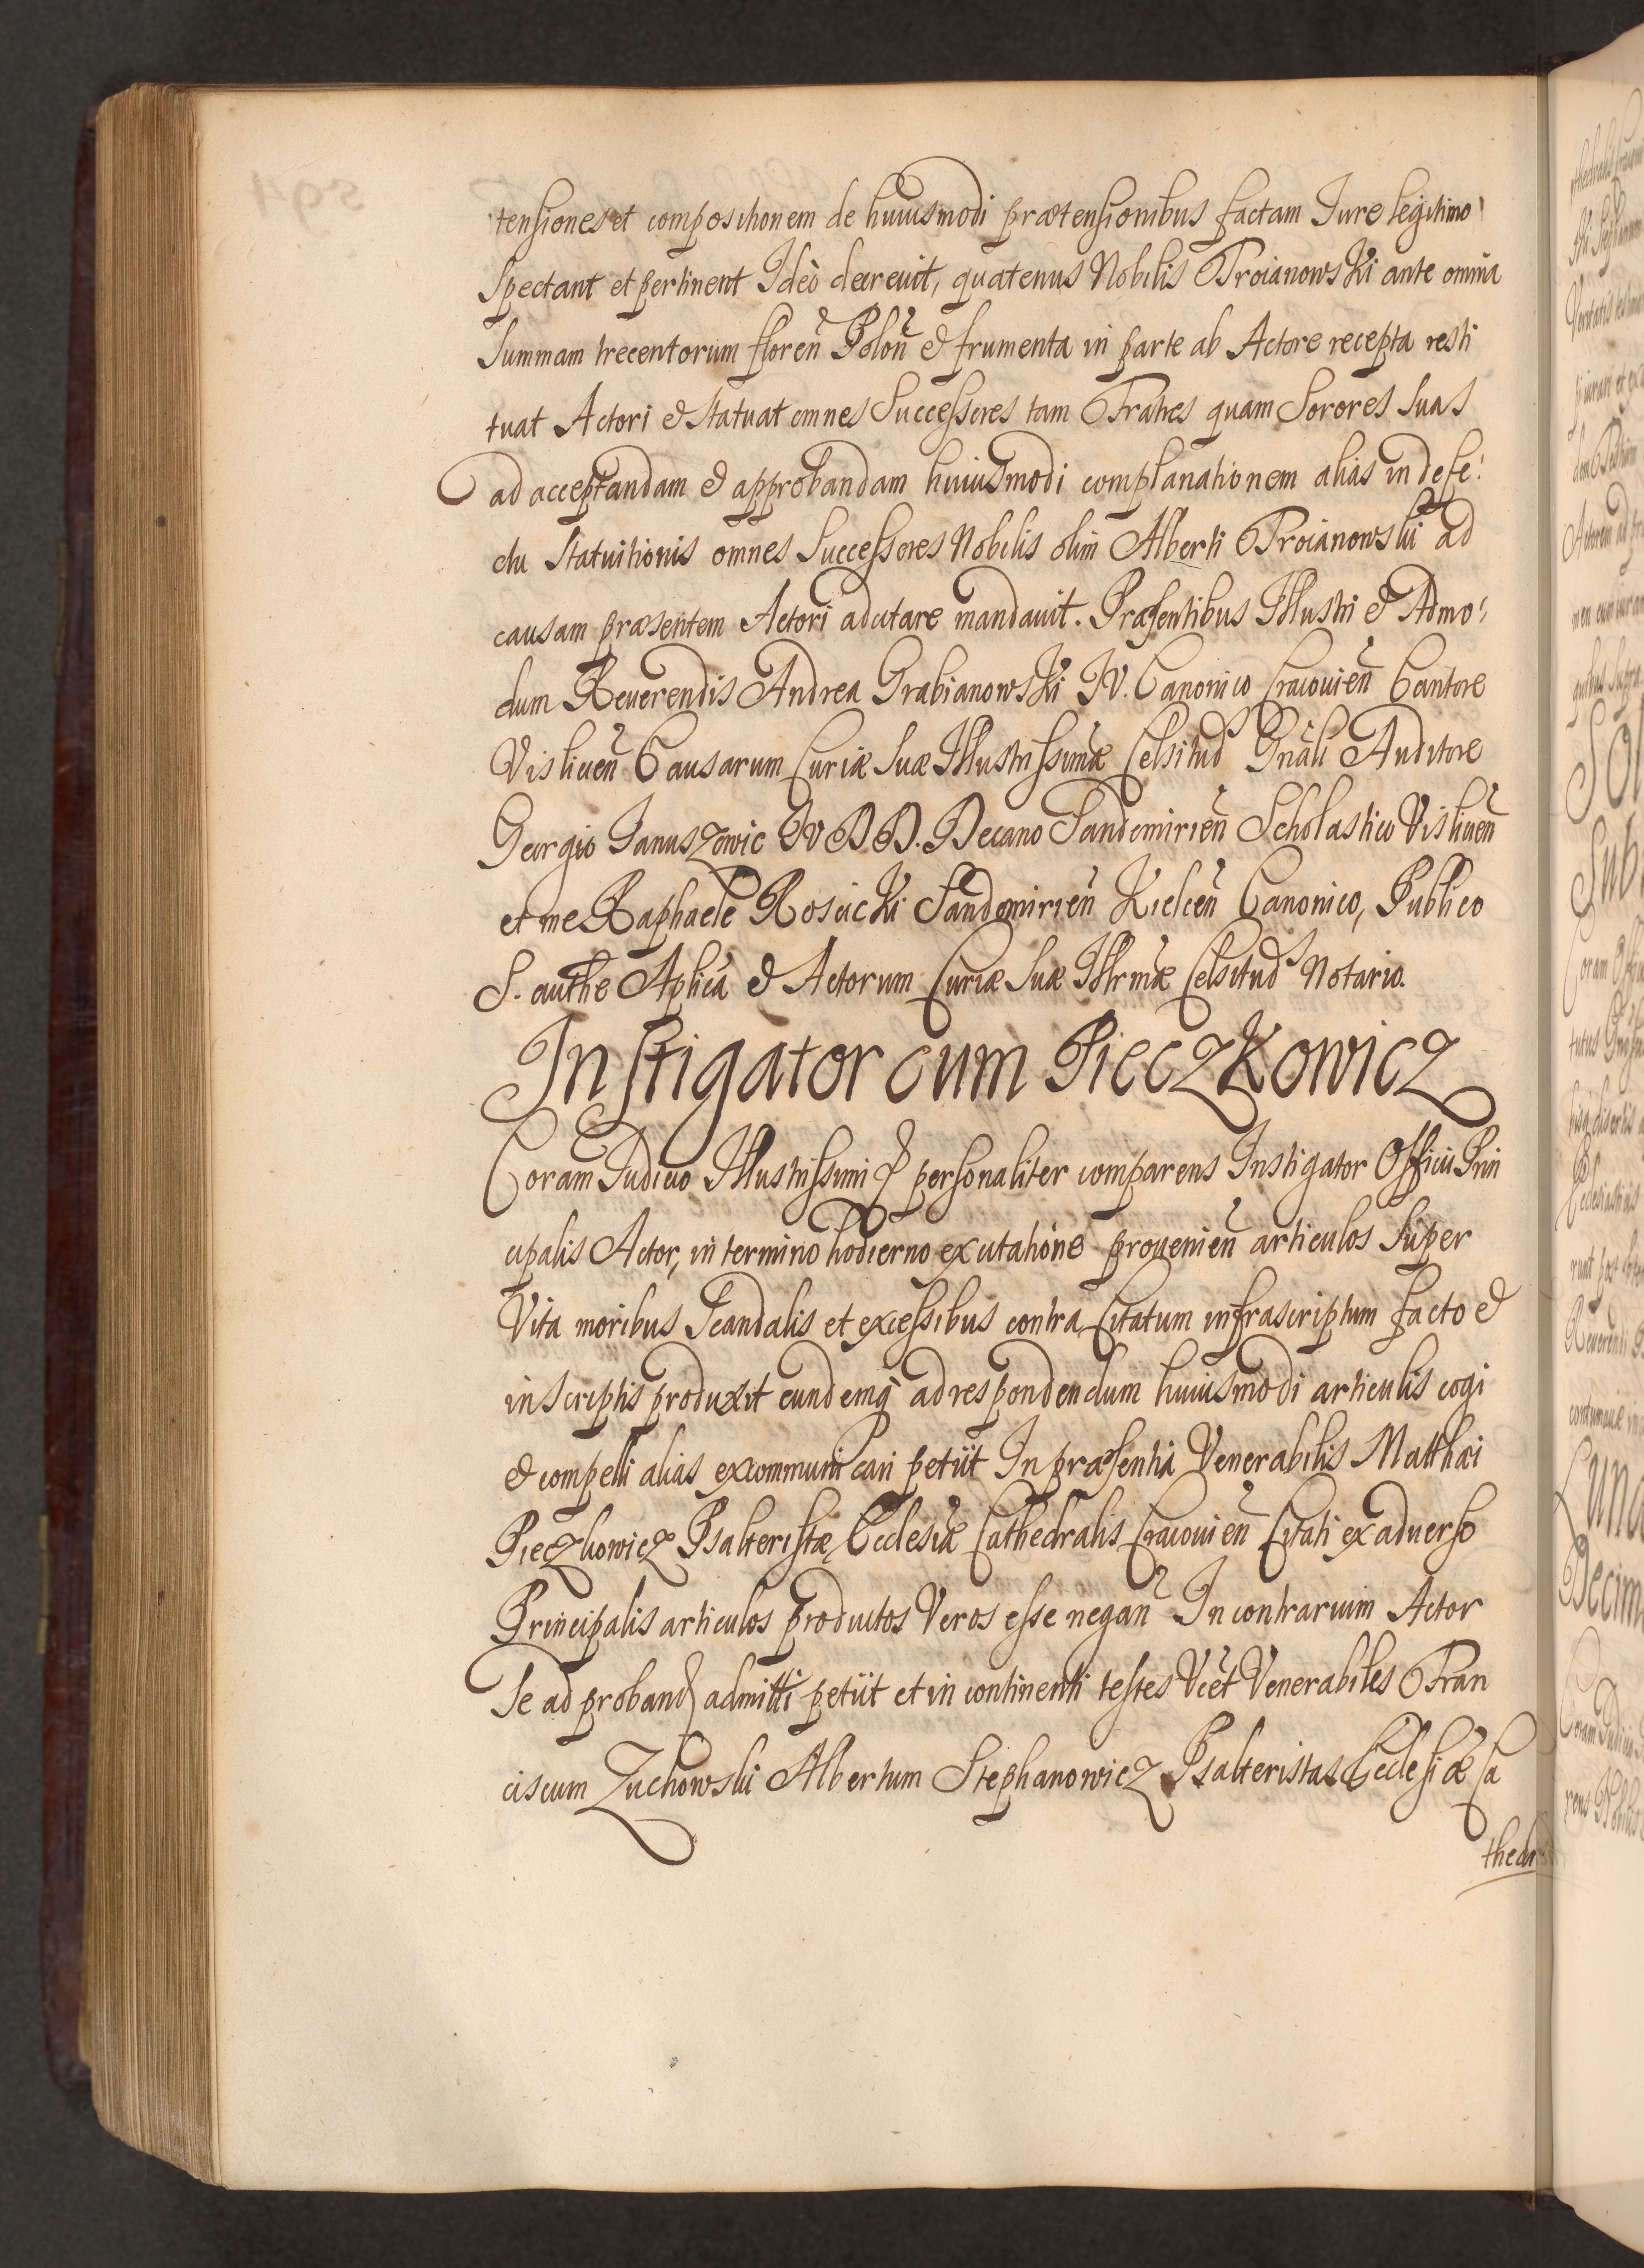 tensiones et compositionem de huiusmodi prætensionibus factam Iure legitimo
Spectant et pertinent Ideò decreuit, quatenus Nobilis Troianowski ante omnia
Summam trecentorum floreñ Poloñ & frumenta in parte ab Actore recepta resti
tuat Actori & statuat omnes Successores tam Fratres quam Sorores suas
ad acceptandam & approbandam huiusmodi complanationem alias in defe:
ctu Statuitionis omnes Successores Nobilis olim Alberti Troianowski ad
causam præsentem Actori adcitare mandauit. Præsentibus Illustri & Admo:
dum Reuerendis Andrea Grabianowski IV. Canonico Cracouieñ Cantore
Vislicieñ Causarum Curiæ Suæ Illustrissimæ Celsitud Gnäli Auditore
Georgio Ianuszowic IVDD. Decano Sandomirieñ Scholastico Vislicieñ
et me Raphaele Rosicki Sandomirieñ Kielceñ Canonico, Publico
S. authe Aplica & Actorum Curiæ Suæ Illrmæ Celsitud Notario.
Instigator cum Pieczkowicz
Coram Iudicio Illustrissimi & personaliter comparens Instigator Officii Prin
cipalis Actor, in termino hodierno ex citatione prouenieñ articulos super
Vita moribus Scandalis et excessibus contra Citatum infrascriptum facto &
in scriptis produxit eundemq̀ ad respondendum huiusmodi articulis cogi
& compelli alias excommunicari petiit In præsentia Venerabilis Matthæi
Pieczkowicz Psalteristæ Ecclesiæ Cathedralis Cracouieñ Citati ex aduerso
Principalis articulos productos Veros esse negañ In contrarium Actor
Se ad proband admitti petiit et in continenti testes Vcet Venerabiles Fran
ciscum Zuchowski Albertum Stephanowicz Psalteristas Ecclesiæ Ca
thedr